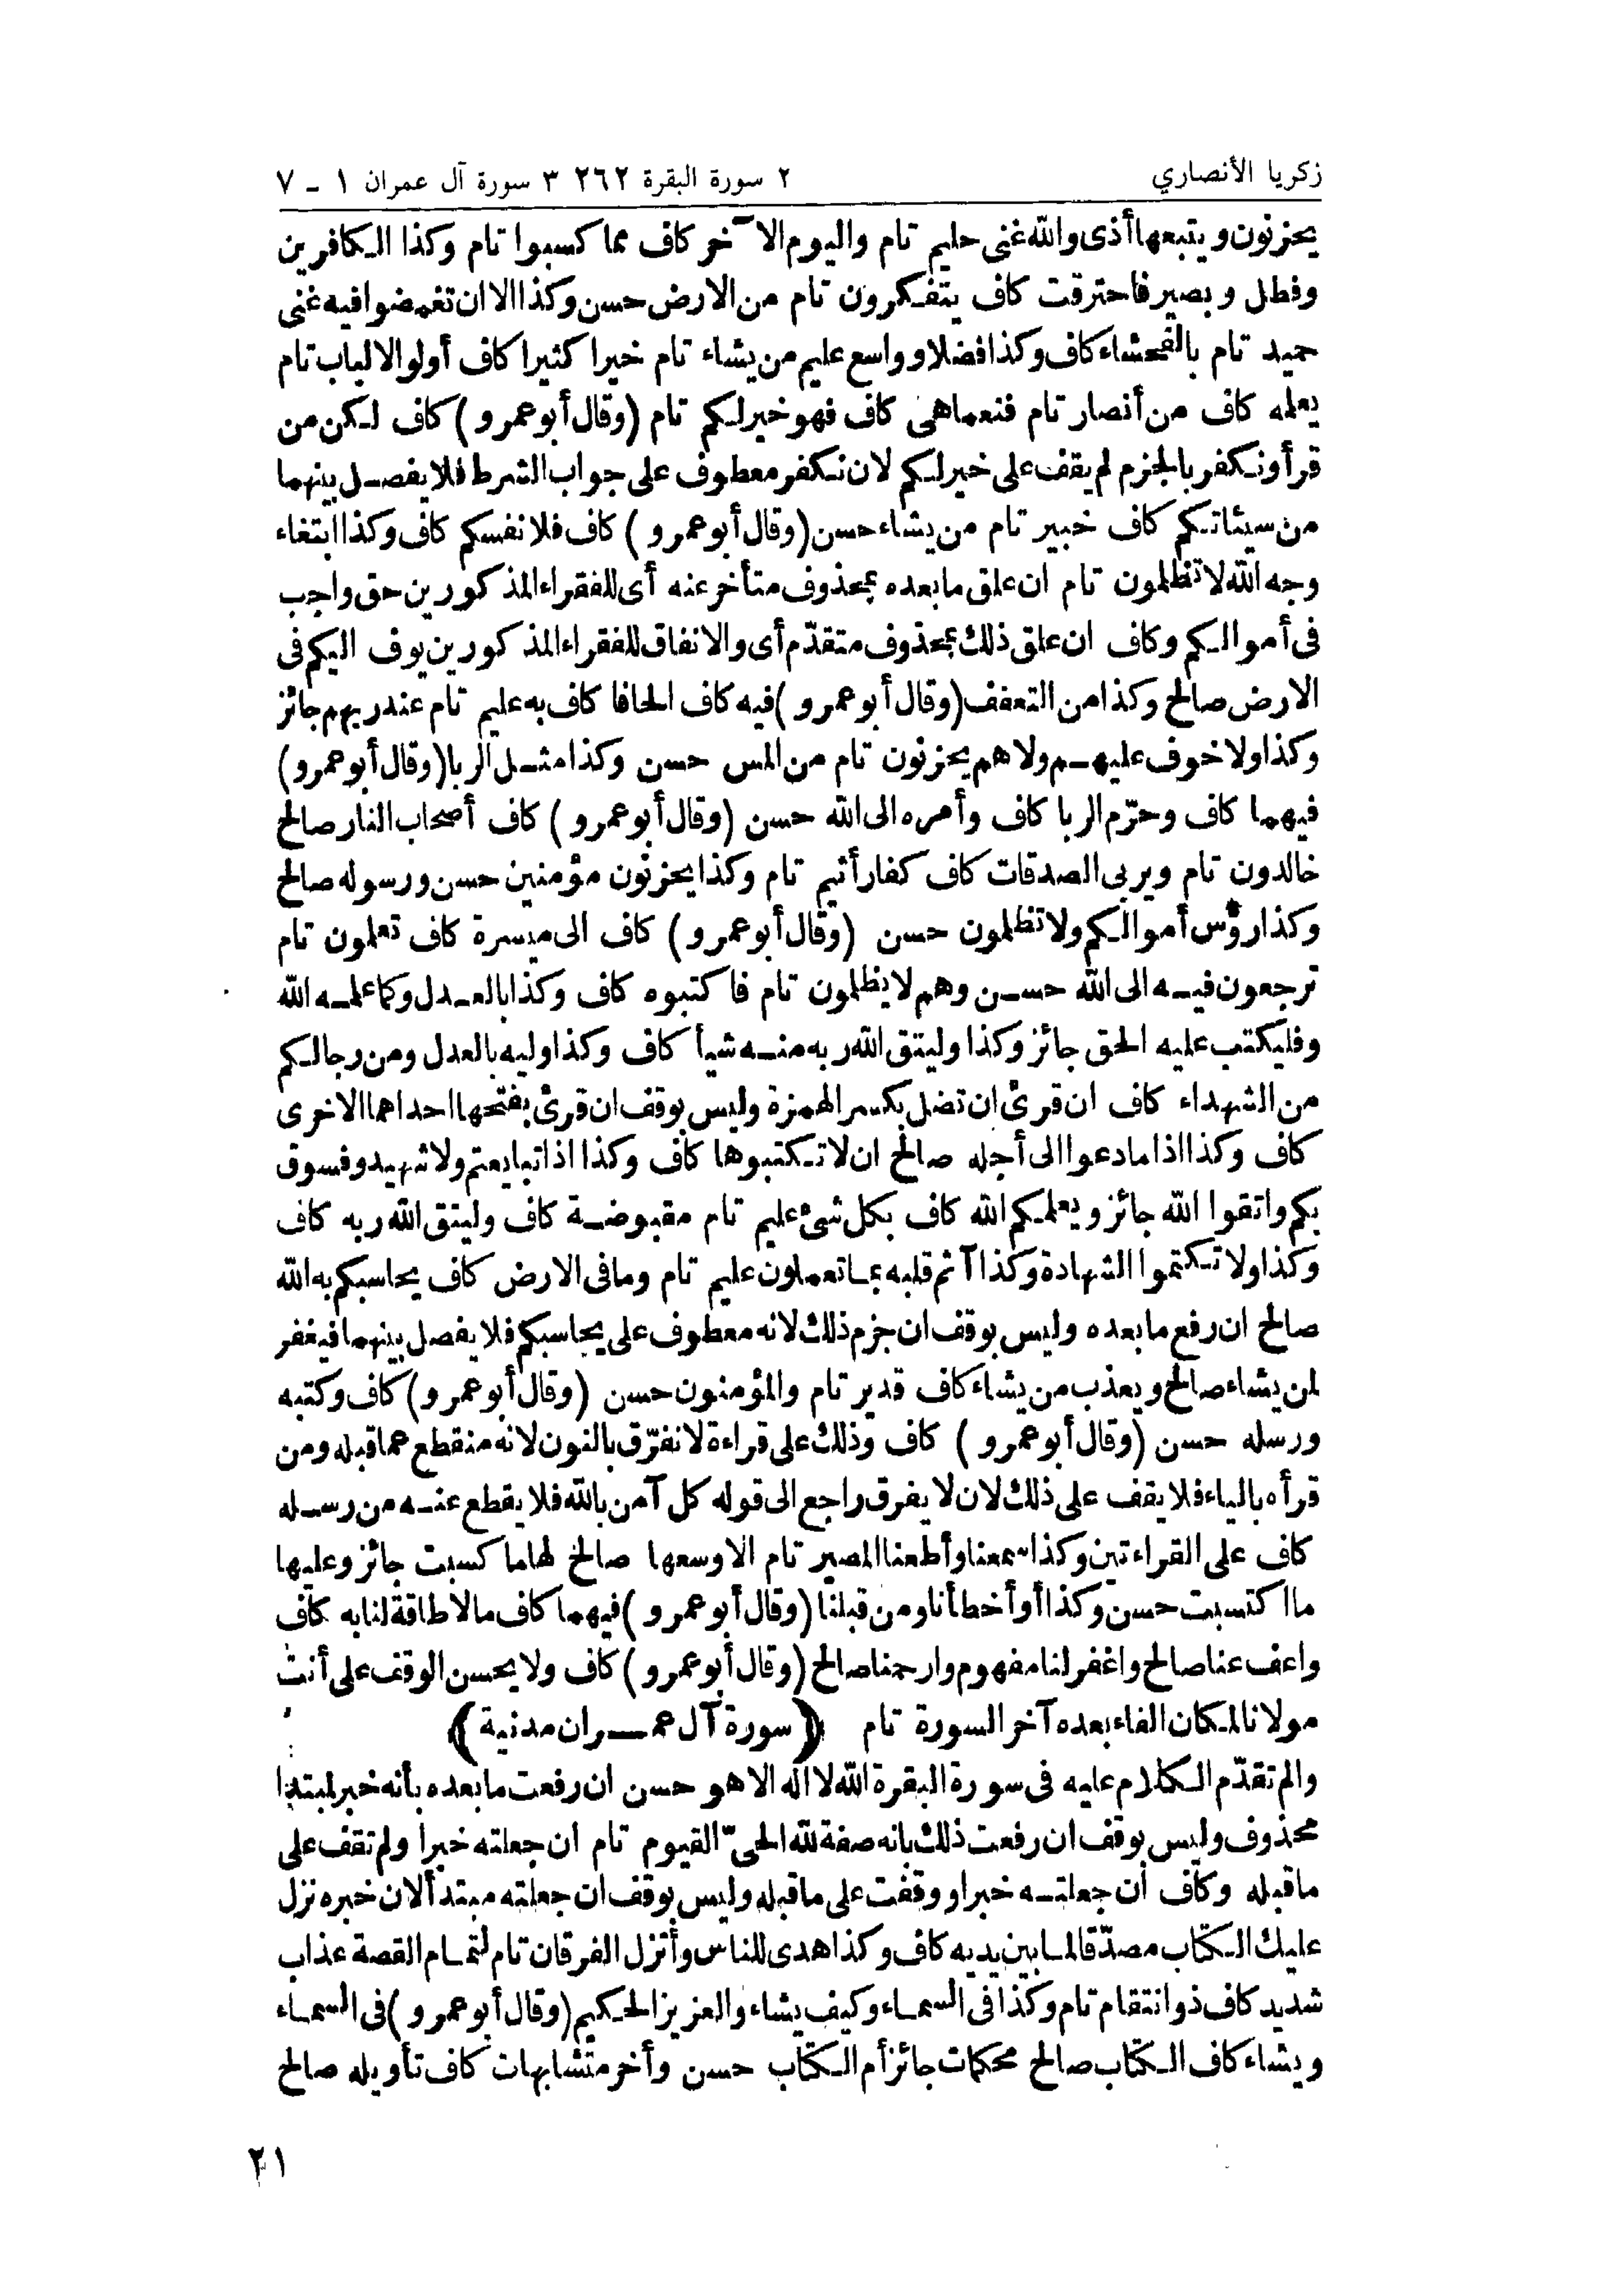 زكريا الأنصاري
٢ سورة البقرة ٢٦٢ ٣ سورة آل عمران ١ - ٧
يحزنون ويتبعها أذى والله غنى حليم تام واليوم الآخر كاف مما كسبوا تام وكذا الكافرين
وفطل وبصير فاحترقت كاف يتفكرون تام من الارض حسن وكذا الا ان تغمضوا فيه غنى
حميد تام بالفحشاء كاف وكذا فضلا وواسع عليم من يشاء تام خيرا كثيرا كاف أولو الالباب تام
يعلمه كاف من أنصار تام فنعماهى كاف فهو خير لكم تام (وقال أبو عمرو) كاف لكن من
قرأ ونكفر بالجزم لم يقف على خير لكم لان نكفر معطوف على جواب الشرط فلا يفصل بينهما
من سيئاتكم كاف خبير تام من يشاء حسن (وقال أبو عمرو) كاف فلانفسكم كاف وكذا ابتغاء
وجه الله لا تظلمون تام ان علق ما بعده بمحذوف متأخر عنه أى للفقراء المذكورين حق واجب
فى أموالكم وكاف ان علق ذلك بمحذوف متقدّم أى والانفاق للفقراء المذكورين يوف اليكم فى
الارض صالح وكذا من التعفف (وقال أبو عمرو) فيه كاف الحافا كاف به عليم تام عند ربهم جائز
وكذا ولا خوف عليهم ولا هم يحزنون تام من المس حسن وكذا مثل الربا (وقال أبو عمرو)
فيهما كاف وحرّم الربا كاف وأمره الى الله حسن (وقال أبو عمرو) كاف أصحاب النار صالح
خالدون تام ويربى الصدقات كاف كفار أثيم تام وكذا يحزنون مؤمنين حسن ورسوله صالح
وكذا رؤس أموالكم ولا تظلمون حسن (وقال أبو عمرو) كاف الى ميسرة كاف تعلمون تام
ترجعون فيه الى الله حسن وهم لا يظلمون تام فاكتبوه كاف وكذا بالعدل وكما علمه الله
وفليكتب عليه الحق جائز وكذا وليتق الله ربه منه شيأ كاف وكذا وليه بالعدل ومن رجالكم
من الشهداء كاف ان قرئ ان تضل بكسر الهمزة وليس بوقف ان قرئ بفتحها احداهما الاخرى
كاف وكذا اذا ما دعوا الى أجله صالح ان لا تكتبوها كاف وكذا اذا تبايعتم ولا شهيد وفسوق
بكم واتقوا الله جائز ويعلمكم الله كاف بكل شئ عليم تام مقبوضة كاف وليتق الله ربه كاف
وكذا ولا تكتموا الشهادة وكذا آثم قلبه بما تعملون عليم تام وما فى الارض كاف يحاسبكم به الله
صالح ان رفع ما بعده وليس بوقف ان جزم ذلك لانه معطوف على يحاسبكم فلا يفصل بينهما فيغفر
لمن يشاء صالح ويعذب من يشاء كاف قدير تام والمؤمنون حسن (وقال أبو عمرو) كاف وكتبه
ورسله حسن (وقال أبو عمرو) كاف وذلك على قراءة لا نفرّق بالنون لانه منقطع عما قبله ومن
قرأه بالياء فلا يقف على ذلك لان لا يفرق راجع الى قوله كل آمن بالله فلا يقطع عنه من رسله
كاف على القراءتين وكذا سمعنا وأطعنا المصير تام الا وسعها صالح لها ما كسبت جائز وعليها
ما اكتسبت حسن وكذا أو أخطأنا ومن قبلنا (وقال أبو عمرو) فيهما كاف ما لا طاقة لنا به كاف
واعف عنا صالح واغفر لنا مفهوم وارحمنا صالح (وقال أبو عمرو) كاف ولا يحسن الوقف على أنت
مولانا لمكان الفاء بعده آخر السورة تام (سورة آل عمران مدنية)
والم تقدّم الكلام عليه فى سورة البقرة الله لا اله الا هو حسن ان رفعت ما بعده بأنه خبر لمبتدا
محذوف وليس بوقف ان رفعت ذلك بانه صفة لله الحىّ القيوم تام ان جعلته خبرا ولم تقف على
ما قبله وكاف أن جعلته خبرا ووقفت على ما قبله وليس بوقف ان جعلته مبتدأ لان خبره نزل
عليك الكتاب مصدّقا لما بين يديه كاف وكذا هدى للناس وأنزل الفرقان تام لتمام القصة عذاب
شديد كاف ذو انتقام تام وكذا فى السماء وكيف يشاء والعزيز الحكيم (وقال أبو عمرو) فى السماء
ويشاء كاف الكتاب صالح محكمات جائز أم الكتاب حسن وأخر متشابهات كاف تأويله صالح
٢١